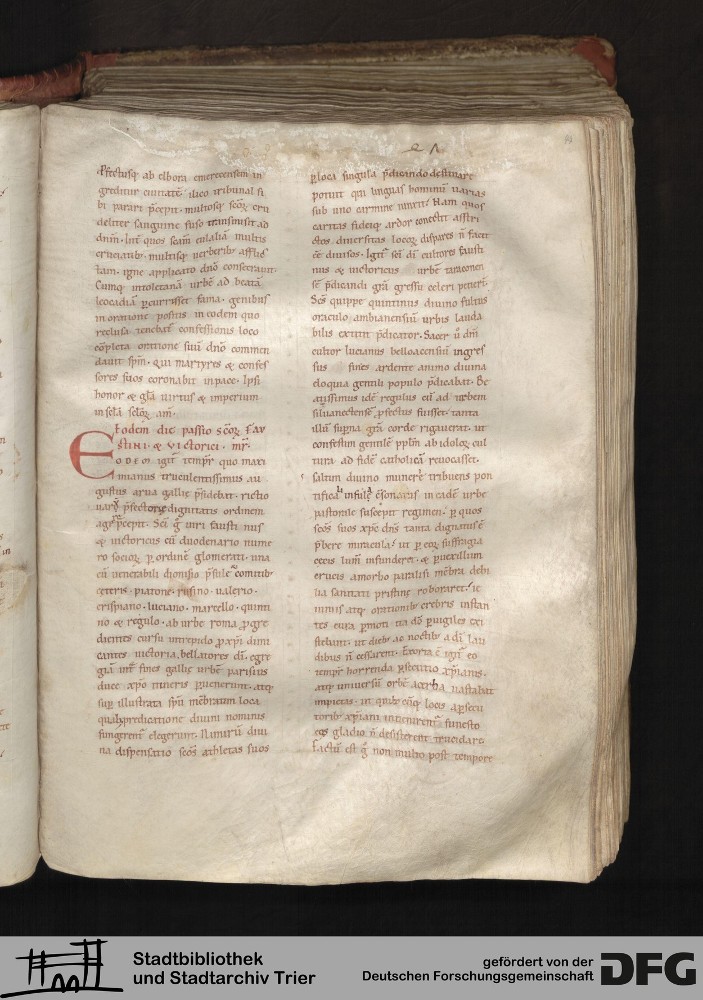 e Λ
pfectusq; ab elbora emerecensem in
greditur ciuitatē. ilico tribunal si
bi parari p̄cepit. multosq; scōꝝ cru
deliter sanguine fuso transmisit ad
dn̄m. int̄ quos scām eulaliā multis
cruciatib; multisq; uerberib; afflic
tam. igne applicato dn̄o consecrauit.
Cumq; intoletanā urbē ad beatā
leocadiā ꝑcurrisset fama. genibus
in oratione positis in eodem quo
reclusa tenebat᷑ confessionis loco
cōpleta oratione suū dn̄o commen
dauit sp̄m. Qui martyres & confes
sores suos coronabit in pace. Ipsi
honor & gl̄a uirtus & imperium
in scl̄a scl̄oꝝ. am̄.
Eodem die passio scōꝝ fau
stini. & victorici. mr̄.
EODEM igit᷑ tempr̄ quo maxi
mianus truculentissimus au
gustus arua gallie p̄sidebat. rictio
uarꝰ p̄fectorie dignitatis ordinem
agere p̄cepit. Sci g̊ uiri fausti nus
& uictoricus cū duodenario nume
ro socioꝝ ꝑ ordinē glomerati. una
cū uenerabili dionisio p̄sule comitib;
ceteris. piatone. rufino. ualerio.
crispiano. luciano. marcello. quinti
no & regulo. ab urbe roma ꝓgre
dientes cursu intrepido ꝓ xp̄i dimi
cantes uictoria. bellatores dī. egre
giā int̄ fines gallie urbē parisius
duce xp̄o itineris ꝑuenerunt. atq;
sup̄ illustrata sp̄u mēbratim loca
quib; predicatione diuini nominis
fungerent᷑ elegerunt. Nimirū diui
na dispensatio scōs athletas suos
ꝑ loca singula p̄dicando destinare
potuit qui linguas hominū uarias
sub uno carmine iunxit. Nam quos
caritas fideiq; ardor conectit astri
ctos. diuersitas locoꝝ dispares n̄ facit
ēē diuisos. Igit᷑ sci dī cultores fausti
nus & uictoricus urbē taruconen
sē p̄dicandi gr̄a gressu celeri petier̄t.
Scs̄ quippe quintinus diuino fultus
oraculo. ambianensiū urbis lauda
bilis extitit p̄dicator. Sacer ū dn̄i
cultor lucianus belloacensiū ingres
sus fines ardente animo diuina
eloquia gentili populo p̄dicabat. Be
atissimus idē regulus cū ad urbem
siluanectensē ꝓfectus fuisset. tanta
illū sup̄na gr̄a corde rigauerat. ut
confestim gentilē pplm̄ ab idoloꝝ cul
tura ad fidē catholicā reuocasset.
saltim diuino munere tribuens pon
tificalib; infulis in eadē urbe
pastorale suscepit regimen. ꝑ quos
scōs suos xp̄c dn̄s tanta dignatus ē
p̄bere miracula. ut ꝑ eoꝝ suffragia
cecis lum̄ infunderet᷑. & ꝑ uexillum
crucis a morbo paralisi mēbra debi
lia sanitati pristine roboraret᷑. ie
iuniis atq; orationib; crebris instan
tes cura ꝑmoti ita dō ꝑuigiles exi
stebant. ut dieb; ac noctib; a dī lau
dibus n̄ cessarent. Exorta ē igit᷑ eo
tempr̄ horrenda ꝑsecutio xp̄ianis.
atq; uniuersū orbē acerba uastabat
impietas. in quib; cūq; locis a ꝑsecu
torib; xp̄iani inuenirent᷑. funesto
eos gladio n̄ desisterent trucidare.
factū est g̊ non multo post tempore
Stadtbibliothek
und Stadtarchiv Trier
gefördert von der
Deutschen Forschungsgemeinschaft
DFG